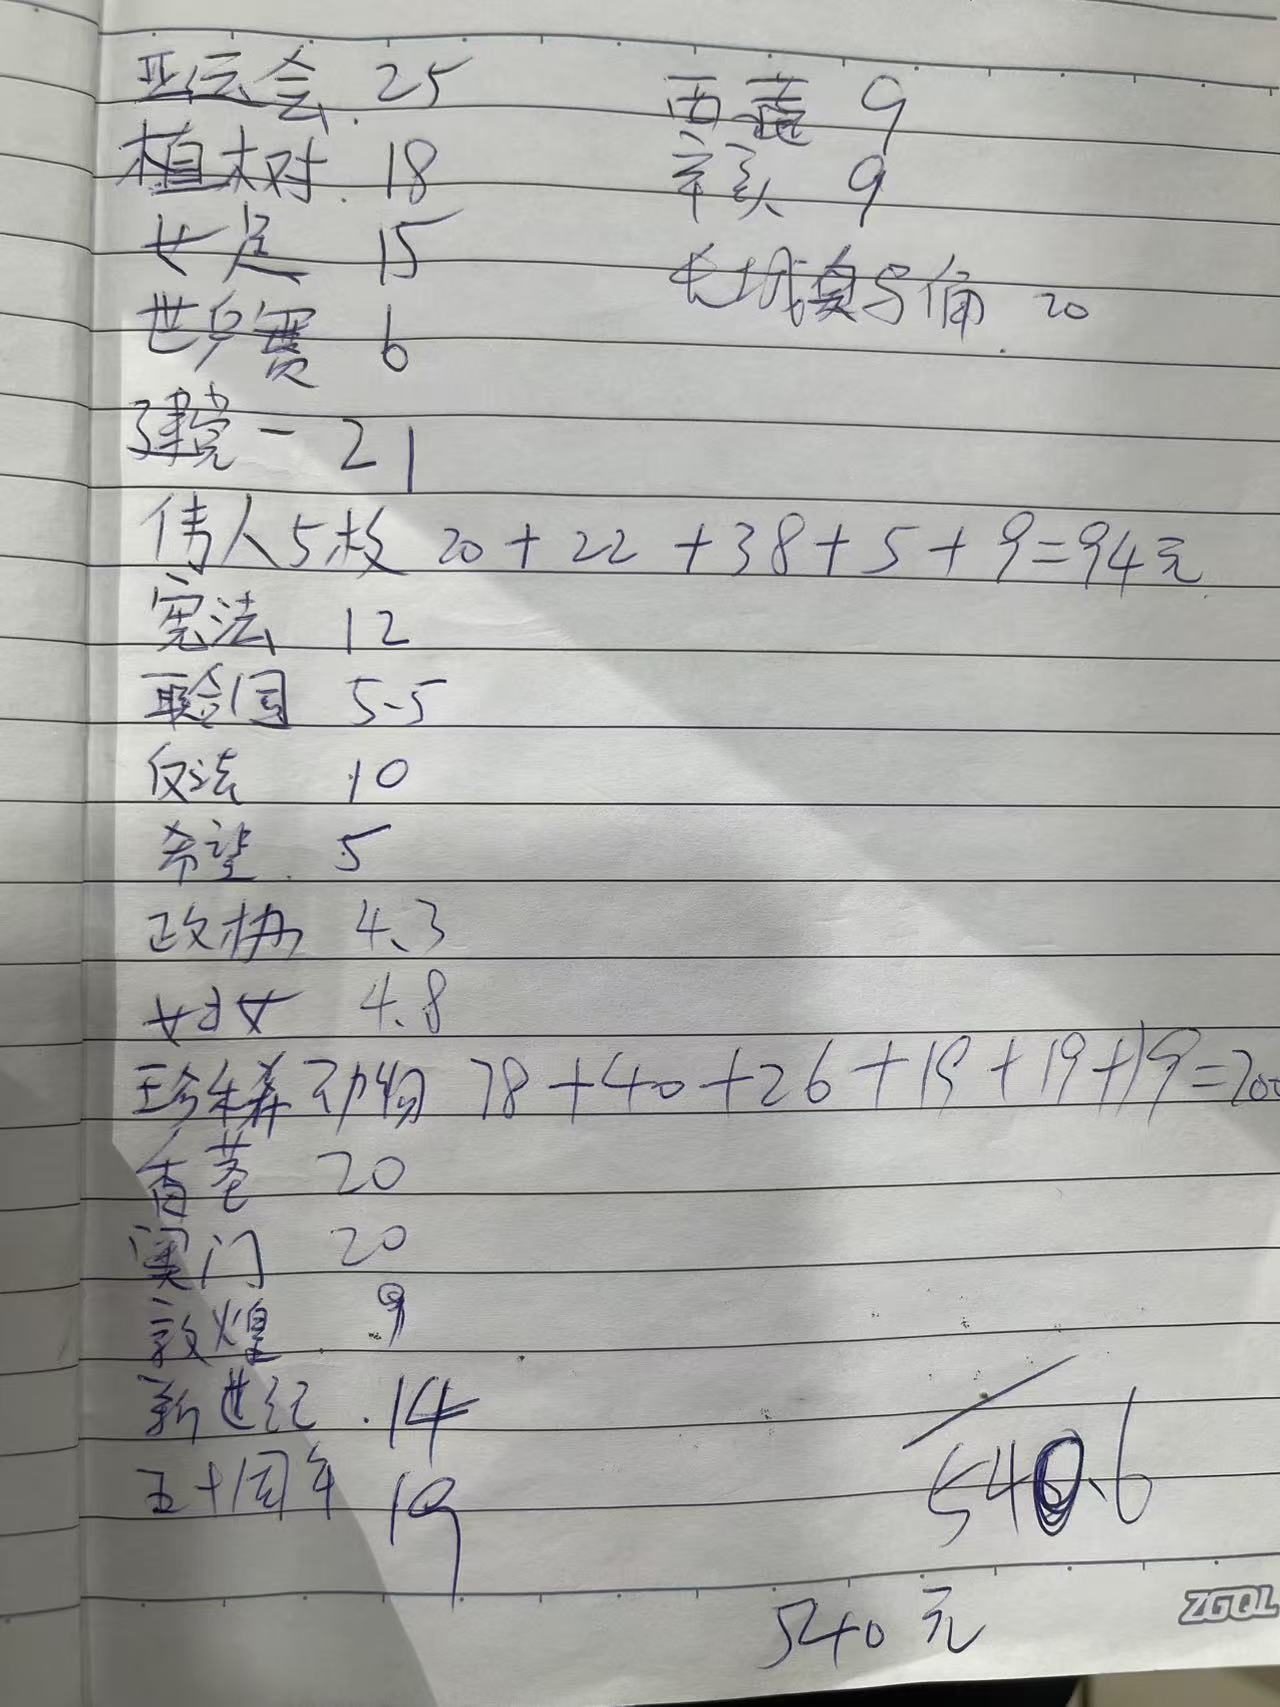 亚运会. 25
植树. 18
女足 15
世乒赛 6
建党一 21
伟人5枚 20+22+38+5+9=94元
宪法 12
联合国 5.5
仅法 10
希望. 5
政协 4.3
妇女 4.8
珍稀动物 78+40+26+19+19+19=200
香港 20
澳门 20
敦煌 9
新世纪 .14
五十周年 19
西藏 9
辛亥 9
长城复与偏. 20
540.6
540元
ZGQL